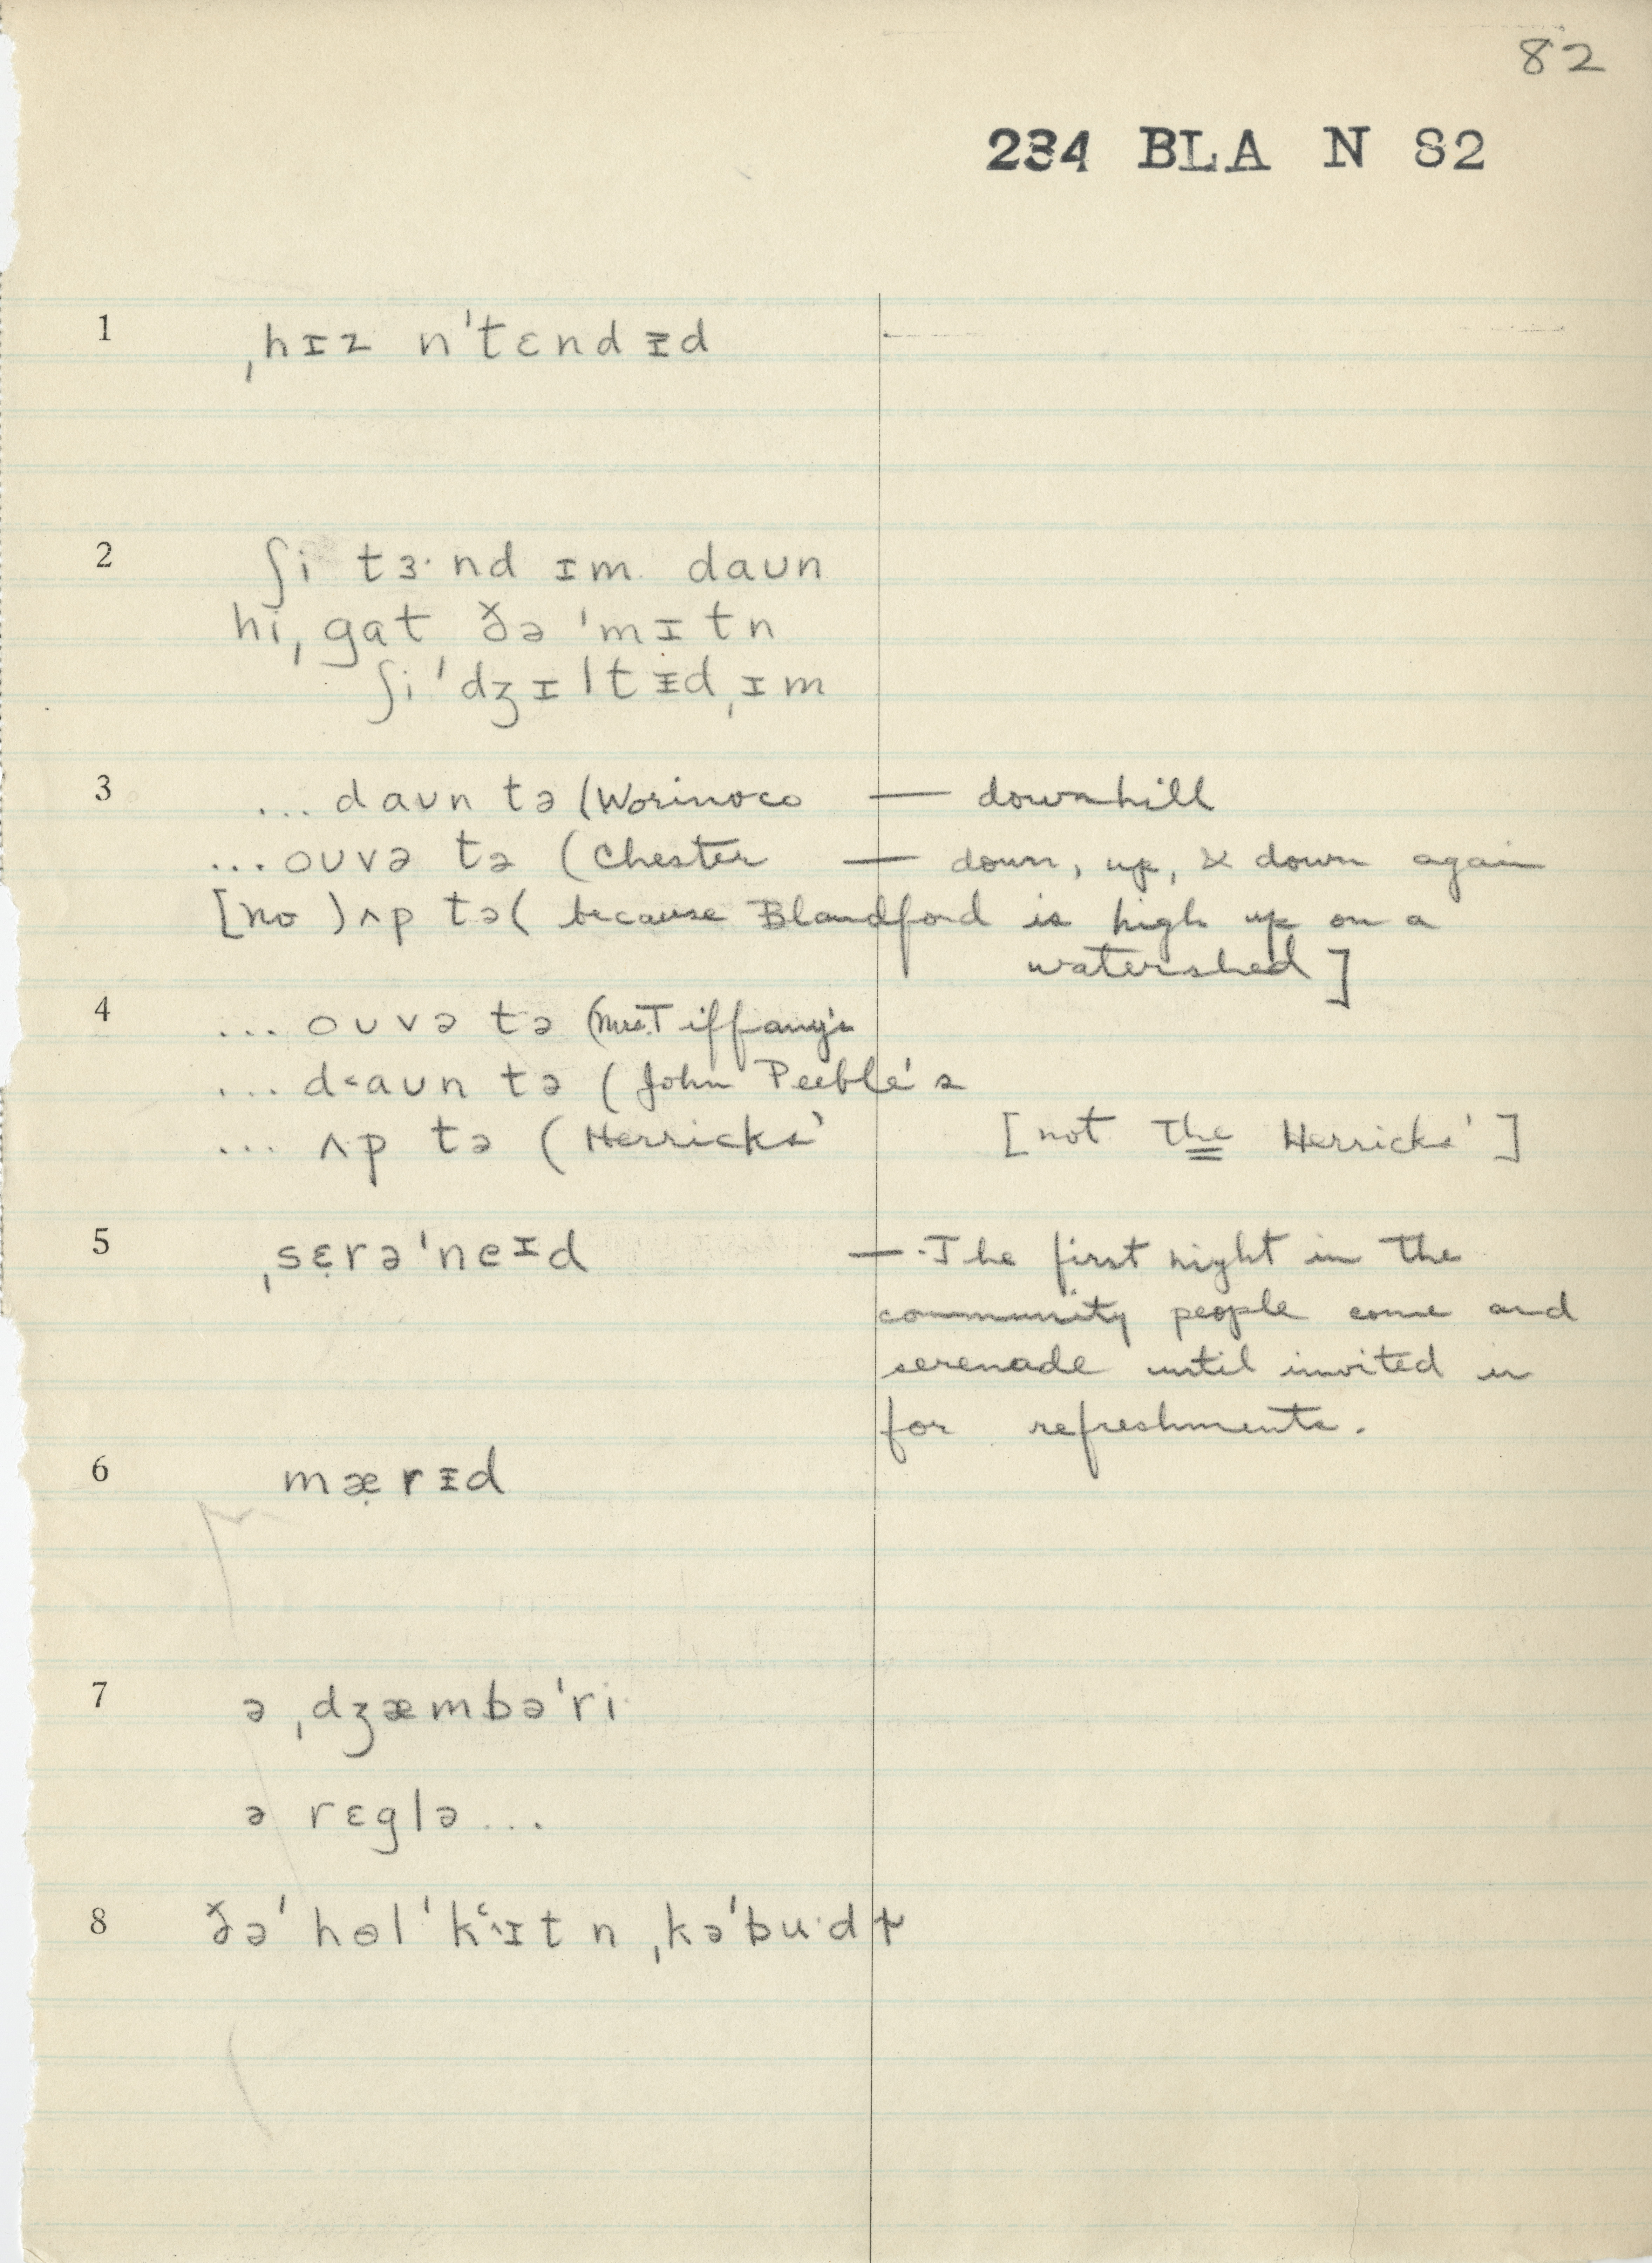 82
234 BLA N 82
1 ˌhɪz n'tɛndɪ̵d
2 ʃi tɜ·nd ɪm daʊn
hiˌgat ðə 'mɪtn
ʃi 'dʒɪltɪ̵dˌɪm
3 ... daʊn tə (Worinoco — downhill
... oʊvə tə (Chester — down, up, & down again
[no ) ʌp tə ( because Blandford is high up on a
watershed]
4 ... oʊvə tə (Mrs. Tiffany's
... d<aʊn tə (John Peeble's
... ʌp tə (Herricks' [not The Herricks']
5 ˌsɛ̣rə'neɪd — The first night in the
community people come and
serenade until invited in
for refreshments.
6 mæ̣rɪ̵d
7 ə ˌdʒæmbə'ri·
ə rɛglə ...
8 ðə' hɵl 'kʻɪtn ˌkə'bu·dɫ